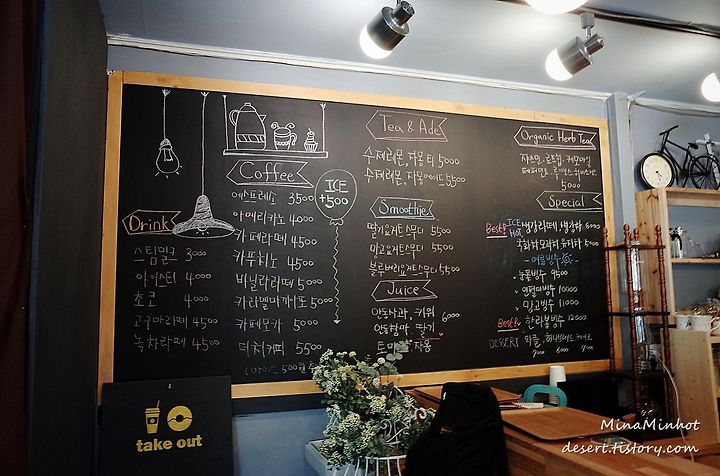 Drink
스팀밀크 3000
아이스티 4000
초코 4000
고구마라떼 4500
녹차라떼 4500
Coffee
에스프레소 3500
아메리카노 4000
카페라떼 4500
카푸치노 4500
바닐라라떼 5000
카라멜마끼아또 5000
카페모카 5000
더치커피 5500
ICE
+500
Tea & Ade
수제레몬,자몽티 5000
수제레몬,자몽에이드 5500
Smoothie
딸기요거트스무디 5500
망고요거트스무디 5500
블루베리요거트스무디 5500
Juice
안동사과, 키위
안동참마, 딸기 6000
토마토, 자몽
Organic Herb Tea
자스민, 로즈힙, 캐모마일
페퍼민트, 루이보스
5000
Special
Best! ICE HOT 생강라떼 생강차 6000
국화차 모과차 유자차 5000
여름빙수
눈꽃빙수 9500
빙수 10000
망고빙수 11000
Best! 한라봉빙수 12000
DESSERT 와플, 허니브레드
7000 6000
take out
MinaMinhot
desert.tistory.com